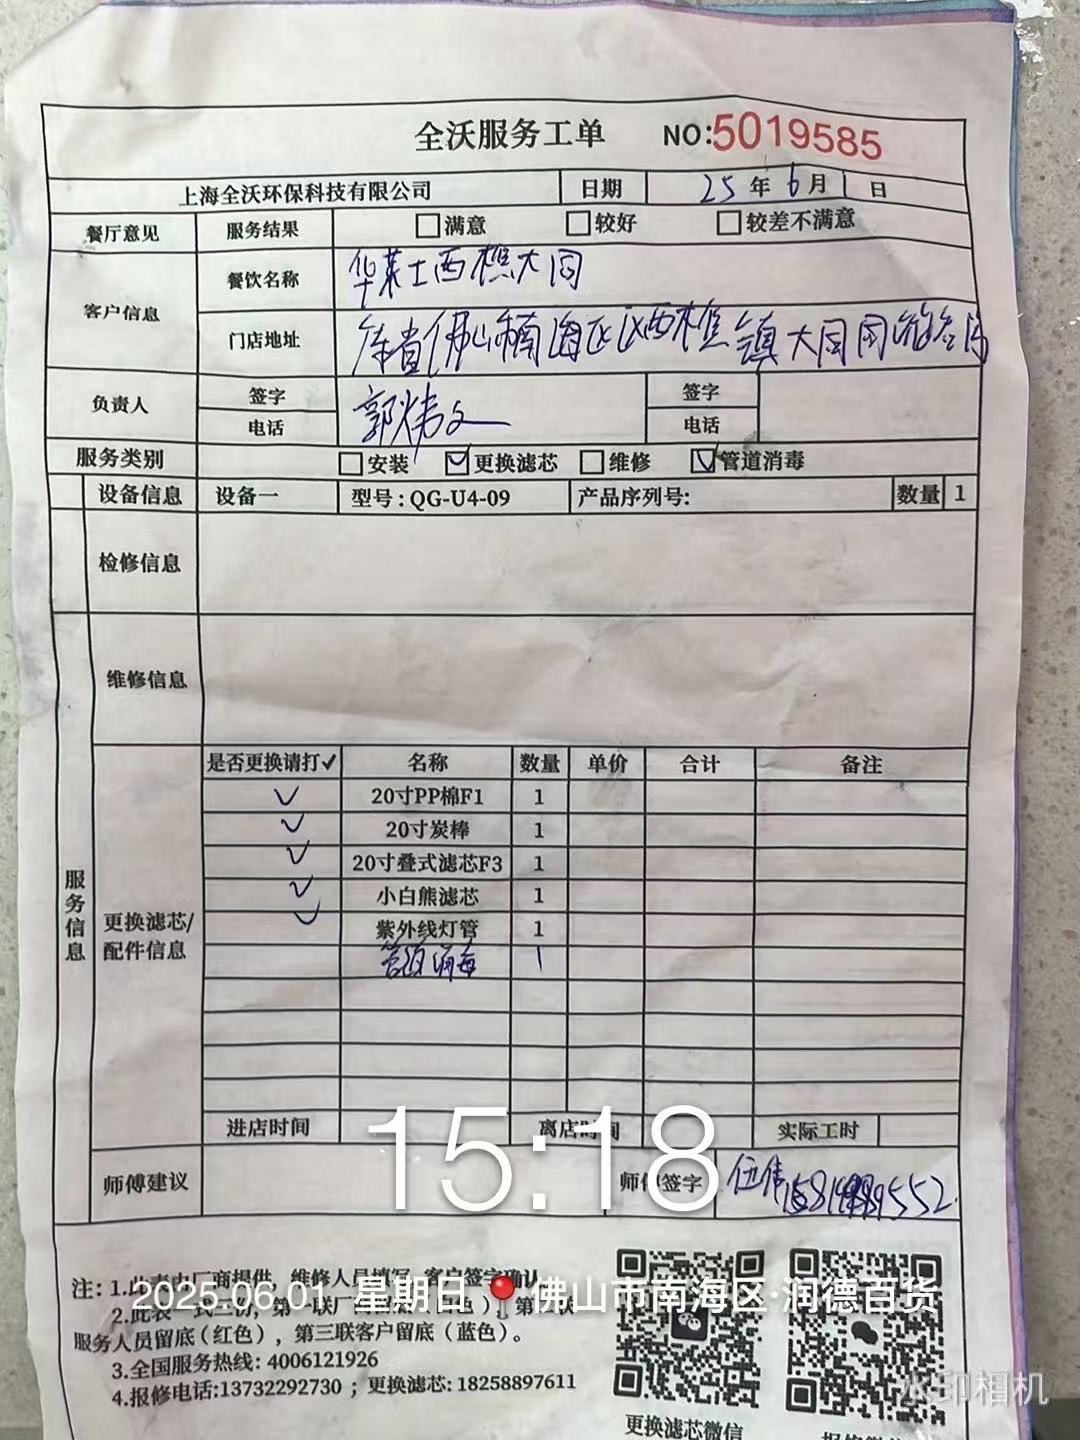 全沃服务工单 NO:5019585
上海全沃环保科技有限公司 日期 25年6月1日
餐厅意见 服务结果 满意 较好 较差不满意
客户信息 餐饮名称 华莱士西樵大同
门店地址 佛山南海区西樵镇大同
负责人 签字 郭炜文 签字
电话 电话
服务类别 安装 更换滤芯 维修 管道消毒
设备信息 设备一 型号:QG-U4-09 产品序列号: 数量 1
检修信息
维修信息
服务信息
更换滤芯/
配件信息
是否更换请打✓ 名称 数量 单价 合计 备注
✓ 20寸PP棉F1 1
✓ 20寸炭棒 1
✓ 20寸叠式滤芯F3 1
✓ 小白熊滤芯 1
✓ 紫外线灯管 1
管道消毒 1
进店时间 离店时间 实际工时
15:18
师傅建议 师傅签字 伍伟
注: 1.此表由厂商提供，维修人员填写,客户签字确认
2025.06.01 星期日 佛山市南海区·润德百货
2.此表一式三份，第一联厂
服务人员留底(红色)，第三联客户留底(蓝色)。
3.全国服务热线: 4006121926
4.报修电话:13732292730 ；更换滤芯: 18258897611
水印相机
更换滤芯微信